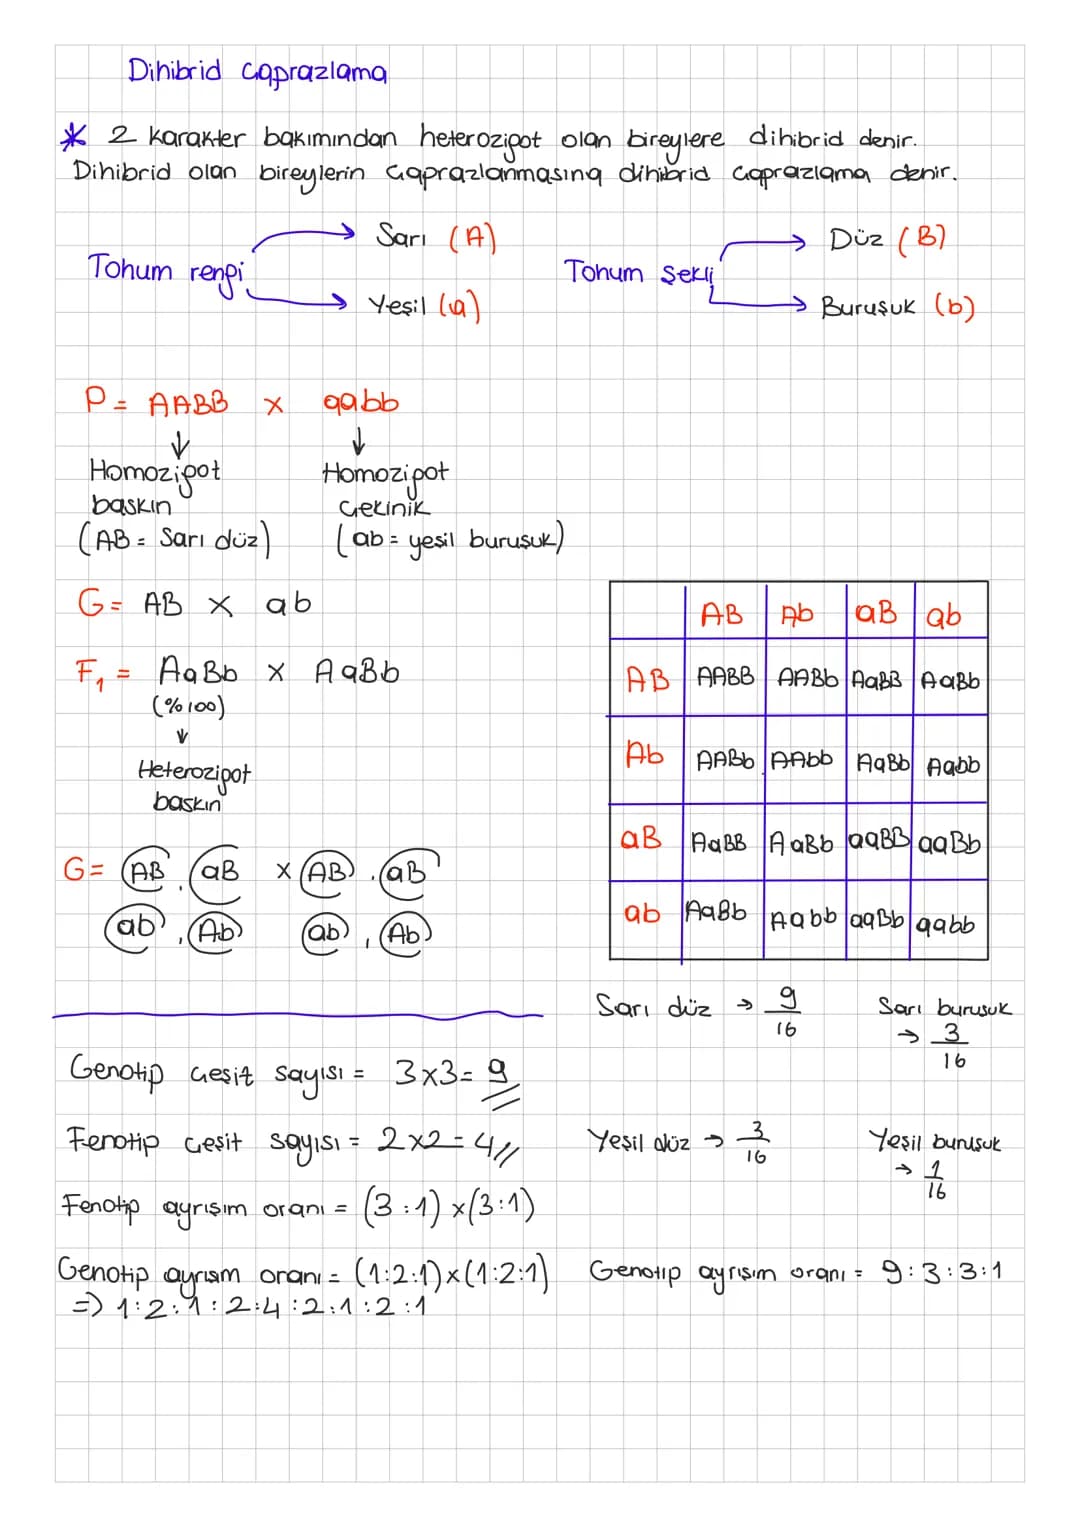 Dihibrid Çaprazlama
* 2 karakter bakımından heterozigot olan bireylere dihibrid denir.
Dihibrid olan bireylerin çaprazlanmasına dihibrid çaprazlama denir.
Tohum rengi → Sarı (A)
→ Yeşil (a)
Tohum şekli → Düz (B)
→ Buruşuk (b)
P = AABB x aabb
↓ ↓
Homozigot Homozigot
baskın Çekinik
(AB = Sarı düz) (ab = yeşil buruşuk)
G = AB x ab
F₁ = AaBb x AaBb
(%100)
↓
Heterozigot
baskın
G = AB, aB x AB, aB
ab, Ab ab, Ab
AB Ab aB ab
AB AABB AABb AaBB AaBb
Ab AABb AAbb AaBb Aabb
aB AaBB AaBb aaBB aaBb
ab AaBb Aabb aaBb aabb
Sarı düz → 9/16
Sarı buruşuk
→ 3/16
Yeşil düz → 3/16
Yeşil buruşuk
→ 1/16
Genotip çeşit sayısı = 3x3= 9
Fenotip çeşit sayısı = 2x2=4//
Fenotip ayrışım oranı = (3:1)x(3:1)
Genotip ayrışım oranı = (1:2:1)x(1:2:1)
=> 1:2:1:2:4:2:1:2:1
Genotip ayrışım oranı = 9:3:3:1